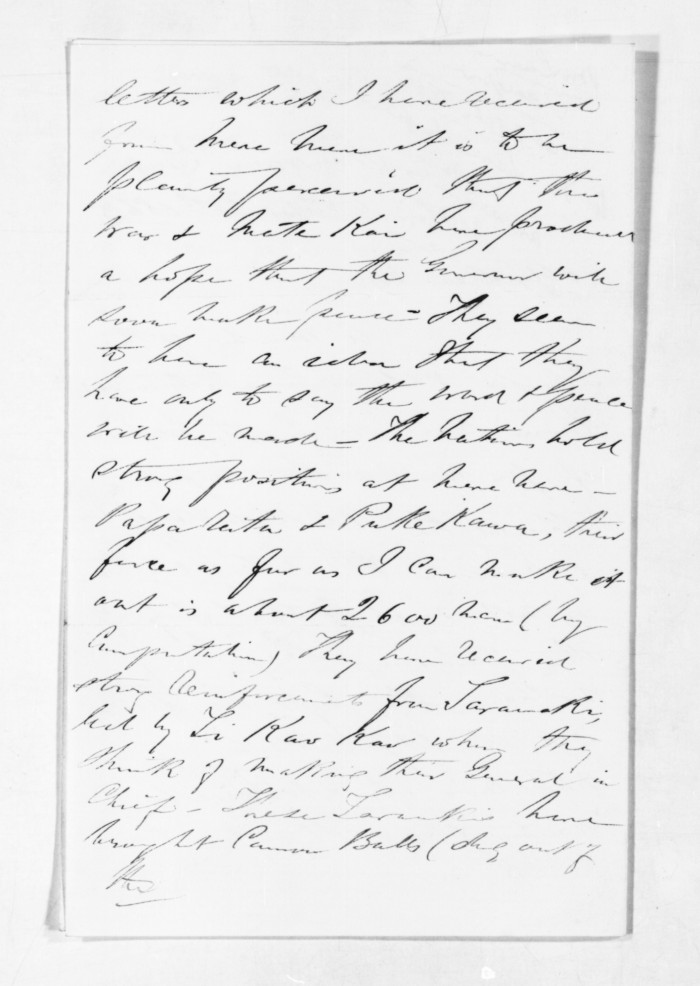 letters which I have received
from Mere Mere it is to be
plainly perceived that the
war & Mate Kai have produced
a hope that the Governor will
soon make peace - They seem
to have an idea that they
have only to say the word & peace
will be made - The Natives hold
strong positions at Mere Mere -
Paparata & Puke Kawa, their
force as far as I can make it
out is about 2600 men (by
Computation) They have received
strong reinforcements from Taranaki,
led by Ti Kao Kao whom they
think of making their General in
Chief - These Taranakis have
brought Cannon Balls (dug out of
the